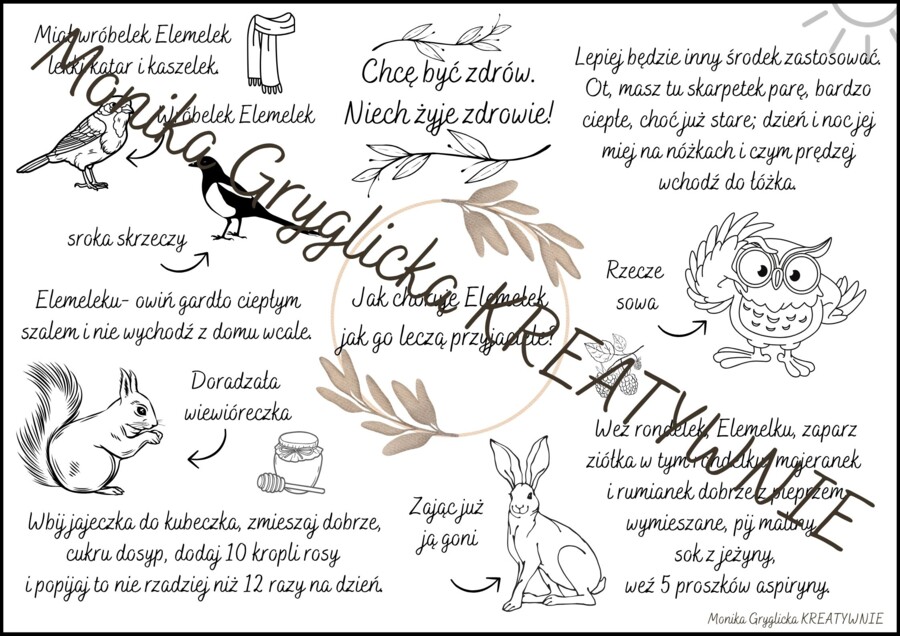 Miał wróbelek Elemelek
lekki katar i kaszelek.
Wróbelek Elemelek
sroka skrzeczy
Elemeleku- owiń gardło ciepłym
szalem i nie wychodź z domu wcale.
Doradzała
wiewióreczka
Wbij jajeczka do kubeczka, zmieszaj dobrze,
cukru dosyp, dodaj 10 kropli rosy
i popijaj to nie rzadziej niż 12 razy na dzień.
Chcę być zdrów.
Niech żyje zdrowie!
Jak choruje Elemelek
jak go leczą przyjaciele?
Zając już
ją goni
Lepiej będzie inny środek zastosować.
Ot, masz tu skarpetek parę, bardzo
ciepłe, choć już stare; dzień i noc jej
miej na nóżkach i czym prędzej
wchodź do łóżka.
Rzecze
sowa
Weź rondelek, Elemelku, zaparz
ziółka w tym rondelku, majeranek
i rumianek dobrze z pieprzem
wymieszane, pij maliny,
sok z jeżyny,
weź 5 proszków aspiryny.
Monika Gryglicka KREATYWNIE
Monika Gryglicka KREATYWNIE